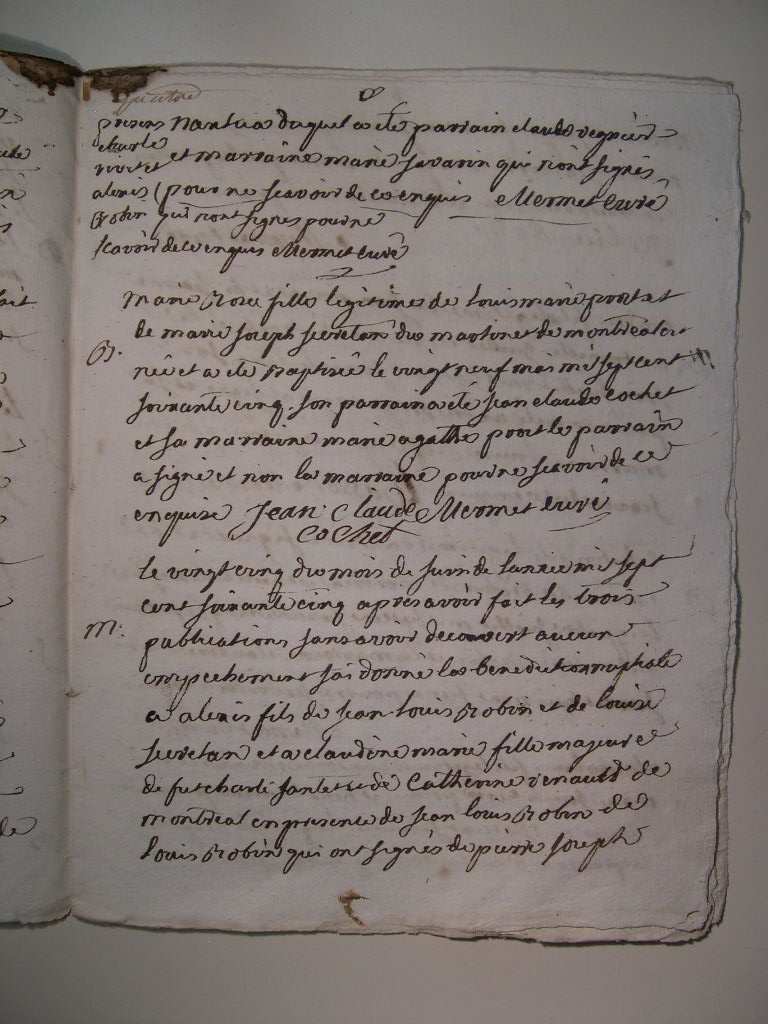 8
presens Nantua duquel a été parrain claude
charle
rivet et et marraine marie savarin qui n'ont signés
alexis (pour ne scavoir de ce enquis Mermet curé
Robin qui n'ont signes pour ne
scavoir de ce enquis Mermet curé
marie Rose fille legitime de louis marie poncet et
de marie joseph secretan du martinet de montreal est
B. née et a été Baptisée le vingt neuf mai mil sept cent
soixante cinq. son parrain a été jean claude cochet
et sa marraine marie agathe poncet le parrain
a signé et non la marraine pour ne scavoir de ce
enquise Jean Claude Mermet curé
Cochet
le vingt cinq du mois de juin de lannée mil sept
cent soixante cinq apres avoir fait les trois
M: publications sans avoir decouvert aucun
empechement jai donné la benediction nuptiale
a alexis fils de jean louis Robin et de louise
secretan et a claudine marie fille majeure
de fut charle jantet et de Catherine renaud de
montreal en presence de jean louis Robin de
louis Robin qui ont signés de pierre joseph